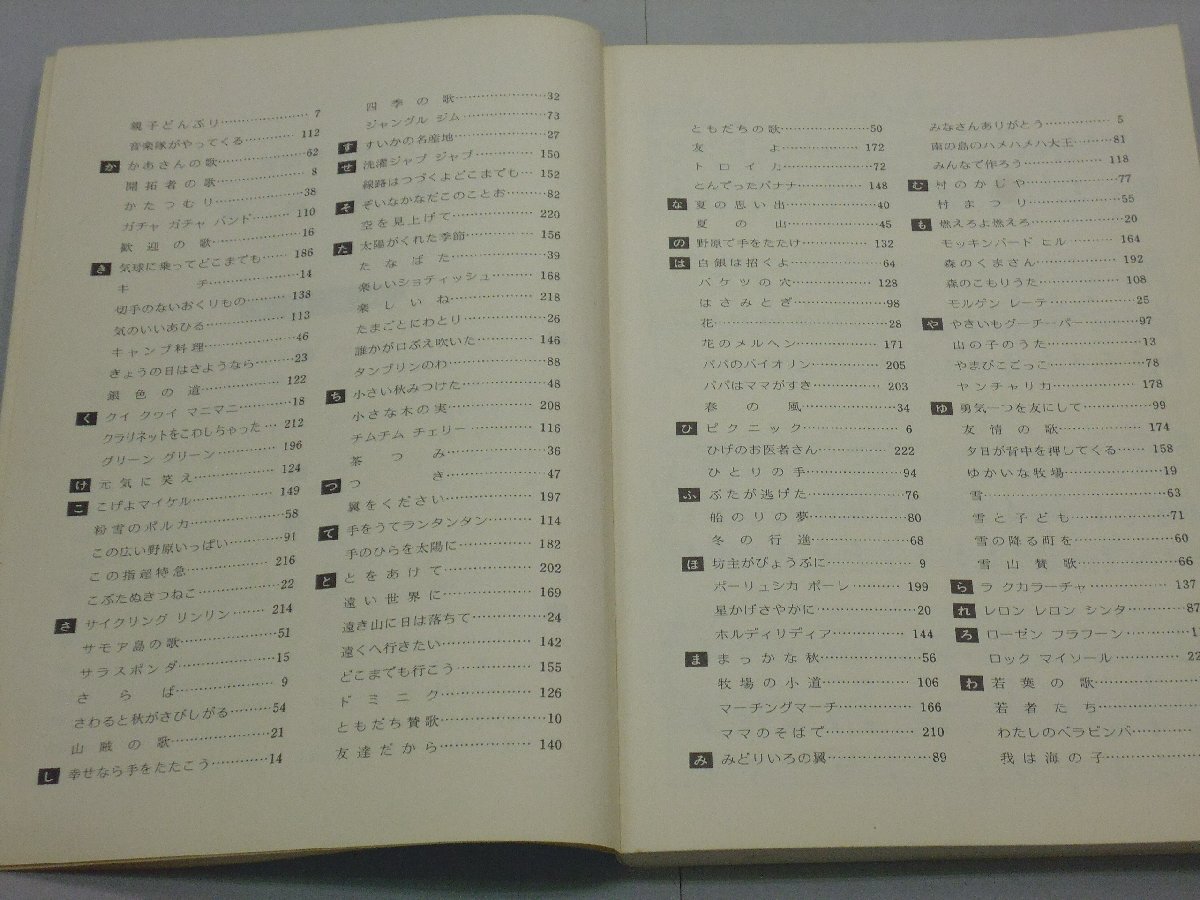 親子どんぶり…………7
音楽隊がやってくる…………112
か かあさんの歌…………62
開拓者の歌…………8
かたつむり…………38
ガチャ ガチャ バンド…………110
歓迎の歌…………16
き 気球に乗ってどこまでも……186
キチ…………14
切手のないおくりもの…………138
気のいいあひる…………113
キャンプ料理…………46
きょうの日はさようなら……23
銀色の道…………122
く クイ クヮイ マニマニ…………18
クラリネットをこわしちゃった…212
グリーン グリーン…………196
け 元気に笑え…………124
こ こげよマイケル…………149
粉雪のポルカ…………58
この広い野原いっぱい…………91
この指超特急…………216
こぶたぬきつねこ…………22
さ サイクリング リンリン…………214
サモア島の歌…………51
サラスポンダ…………15
さらば…………9
さわると秋がさびしがる…………54
山賊の歌…………21
し 幸せなら手をたたこう…………14
四季の歌…………32
ジャングル ジム…………73
す すいかの名産地…………27
せ 洗濯ジャブ ジャブ…………150
線路はつづくよどこまでも…152
そ ぞいなかなだこのことお……82
空を見上げて…………220
た 太陽がくれた季節…………156
たなばた…………39
楽しいショティッシュ…………168
楽しいね…………218
たまごとにわとり…………26
誰かが口ぶえ吹いた…………146
タンブリンのわ…………88
ち 小さい秋みつけた…………48
小さな木の実…………208
チムチム チェリー…………116
茶つみ…………36
つ つき…………47
翼をください…………197
て 手をうてランタンタン…………114
手のひらを太陽に…………182
と とをあけて…………202
遠い世界に…………169
遠き山に日は落ちて…………24
遠くへ行きたい…………142
どこまでも行こう…………155
ドミニク…………126
ともだち賛歌…………10
友達だから…………140
ともだちの歌…………50
友よ…………172
トロイカ…………72
とんでったバナナ…………148
な 夏の思い出…………40
夏の山…………45
の 野原で手をたたけ…………132
は 白銀は招くよ…………64
バケツの穴…………128
はさみとぎ…………98
花…………28
花のメルヘン…………171
パパのバイオリン…………205
パパはママがすき…………203
春の風…………34
ひ ピクニック…………6
ひげのお医者さん…………222
ひとりの手…………94
ふ ぶたが逃げた…………76
船のりの夢…………80
冬の行進…………68
ほ 坊主がびょうぶに…………9
ポーリュシカ ポーレ…………199
星かげさやかに…………20
ホルディリディア…………144
ま まっかな秋…………56
牧場の小道…………106
マーチングマーチ…………166
ママのそばで…………210
み みどりいろの翼…………89
みなさんありがとう…………5
南の島のハメハメハ大王……81
みんなで作ろう…………118
む 村のかじや…………77
村まつり…………55
も 燃えろよ燃えろ…………20
モッキンバード ヒル…………164
森のくまさん…………192
森のこもりうた…………108
モルゲン レーテ…………25
や やきいもグーチーパー…………97
山の子のうた…………13
やまびこごっこ…………78
ヤンチャリカ…………178
ゆ 勇気一つを友にして…………99
友情の歌…………174
夕日が背中を押してくる……158
ゆかいな牧場…………19
雪…………63
雪と子ども…………71
雪の降る町を…………60
雪山賛歌…………66
ら ラ クカラーチャ…………137
れ レロン レロン シンタ…………87
ろ ローゼン フラフーン…………
ロック マイソール…………22
わ 若葉の歌…………
若者たち…………
わたしのベラビンバ…………
我は海の子…………